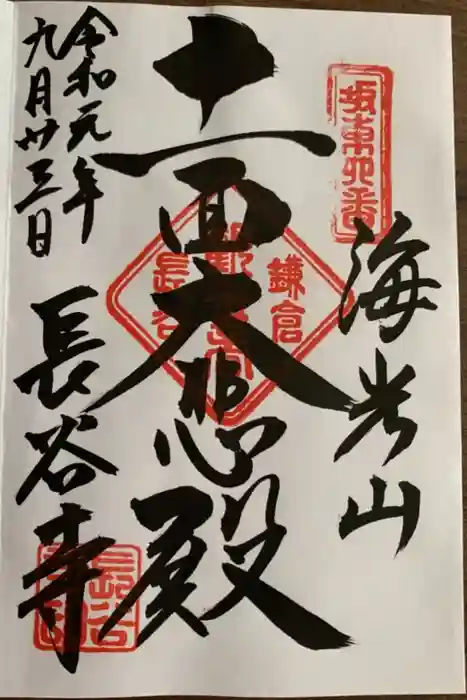 坂東四番
海光山
十一面大悲殿
鎌倉
長谷
令和元年
九月廿三日
長谷寺